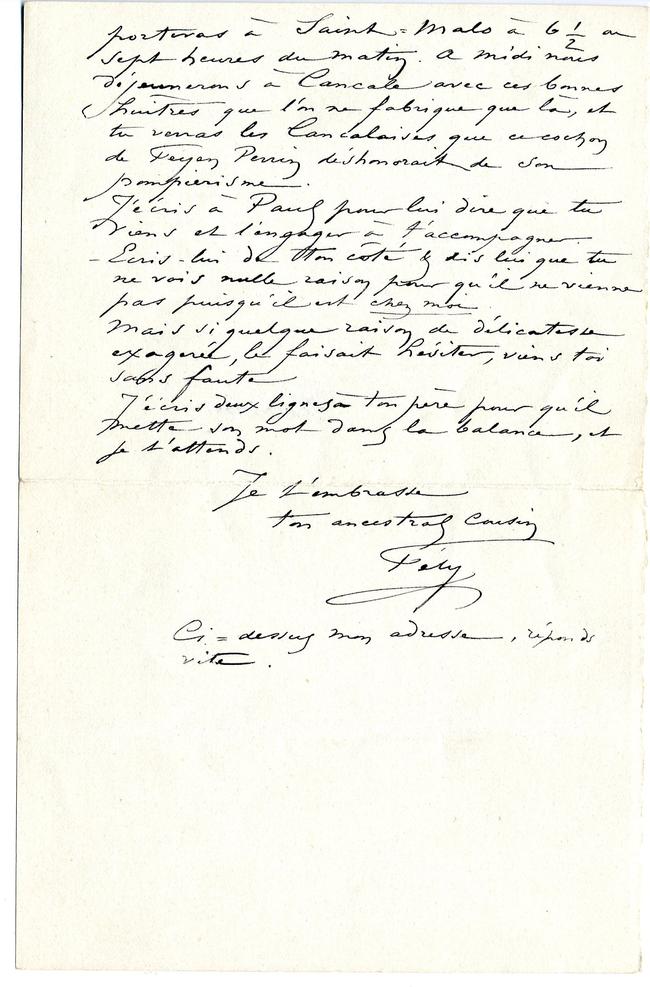 porteras à Saint=Malo à 6 ½ ou
sept heures du matin. A midi nous
déjeunerons à Cancale avec ces bonnes
huîtres que l'on ne fabrique que là, et
tu verras les Cancalaises que ce cochon
de Feyen Perrin déshonorait de son
pompiérisme.
J'écris à Paul pour lui dire que tu
viens et l'engager à t'accompagner.
- Ecris-lui de ton côté & dis lui que tu
ne vois nulle raison pour qu'il ne vienne
pas puisqu'il est chez moi.
Mais si quelque raison de délicatesse
exagerée, le faisait hésiter, viens toi
sans faute
J'écris deux lignes à ton père pour qu'il
mette son mot dans la balance, et
je t'attends.
Je t'embrasse
ton ancestral Cousin
Fély
Ci=dessus mon adresse, réponds
vite.